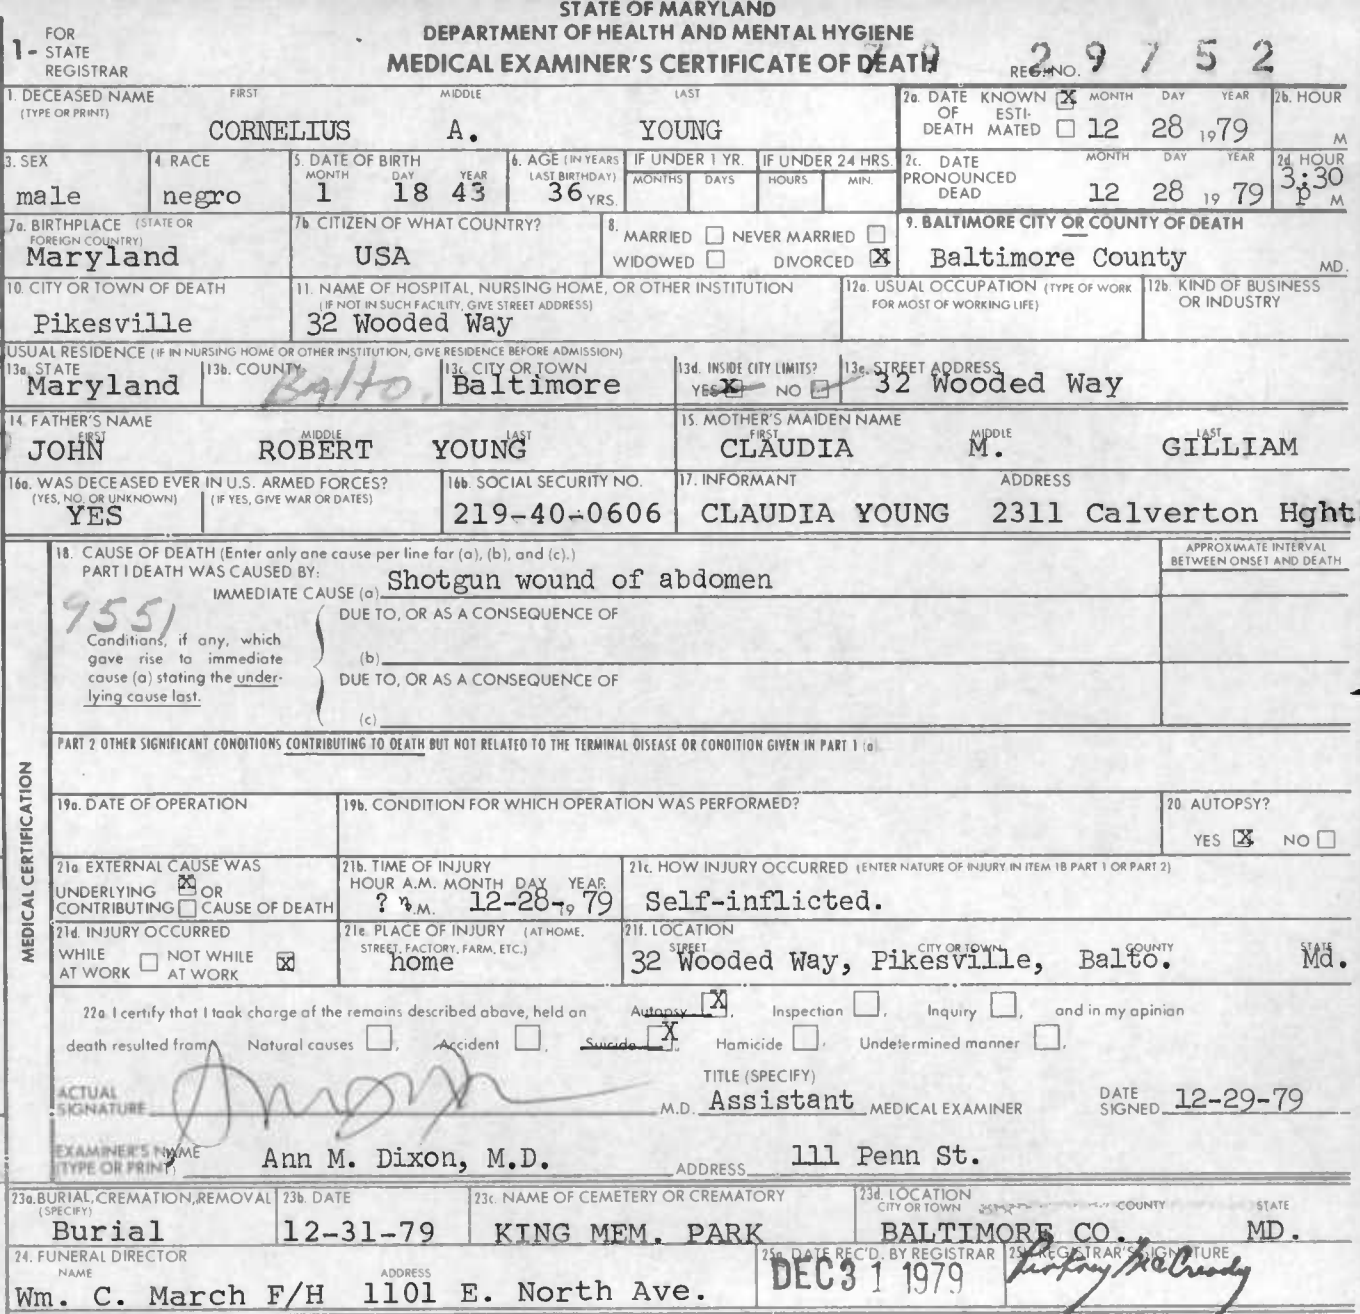 STATE OF MARYLAND
DEPARTMENT OF HEALTH AND MENTAL HYGIENE
MEDICAL EXAMINER'S CERTIFICATE OF DEATH
1- FOR STATE REGISTRAR
REG. NO. 79 29752
1. DECEASED NAME (TYPE OR PRINT) FIRST MIDDLE LAST
CORNELIUS A. YOUNG
2a. DATE OF DEATH KNOWN X ESTIMATED MONTH DAY YEAR
12 28 1979
2b. HOUR M
3. SEX
male
4. RACE
negro
5. DATE OF BIRTH MONTH DAY YEAR
1 18 43
6. AGE (IN YEARS LAST BIRTHDAY)
36 YRS.
IF UNDER 1 YR. MONTHS DAYS
IF UNDER 24 HRS. HOURS MIN.
2c. DATE PRONOUNCED DEAD MONTH DAY YEAR
12 28 19 79
2d. HOUR
3:30 P M
7a. BIRTHPLACE (STATE OR FOREIGN COUNTRY)
Maryland
7b. CITIZEN OF WHAT COUNTRY?
USA
8. MARRIED NEVER MARRIED
WIDOWED DIVORCED X
9. BALTIMORE CITY OR COUNTY OF DEATH
Baltimore County MD.
10. CITY OR TOWN OF DEATH
Pikesville
11. NAME OF HOSPITAL, NURSING HOME, OR OTHER INSTITUTION
(IF NOT IN SUCH FACILITY, GIVE STREET ADDRESS)
32 Wooded Way
12a. USUAL OCCUPATION (TYPE OF WORK FOR MOST OF WORKING LIFE)
12b. KIND OF BUSINESS OR INDUSTRY
USUAL RESIDENCE (IF IN NURSING HOME OR OTHER INSTITUTION, GIVE RESIDENCE BEFORE ADMISSION)
13a. STATE
Maryland
13b. COUNTY
Balto.
13c. CITY OR TOWN
Baltimore
13d. INSIDE CITY LIMITS?
YES X NO
13e. STREET ADDRESS
32 Wooded Way
14. FATHER'S NAME FIRST MIDDLE LAST
JOHN ROBERT YOUNG
15. MOTHER'S MAIDEN NAME FIRST MIDDLE LAST
CLAUDIA M. GILLIAM
16a. WAS DECEASED EVER IN U.S. ARMED FORCES?
(YES, NO, OR UNKNOWN) (IF YES, GIVE WAR OR DATES)
YES
16b. SOCIAL SECURITY NO.
219-40-0606
17. INFORMANT ADDRESS
CLAUDIA YOUNG 2311 Calverton Hght
MEDICAL CERTIFICATION
18. CAUSE OF DEATH (Enter only one cause per line for (a), (b), and (c).)
APPROXIMATE INTERVAL BETWEEN ONSET AND DEATH
PART I DEATH WAS CAUSED BY:
IMMEDIATE CAUSE (a) Shotgun wound of abdomen
9551
DUE TO, OR AS A CONSEQUENCE OF
Conditions, if any, which gave rise to immediate cause (a) stating the underlying cause last.
(b)
DUE TO, OR AS A CONSEQUENCE OF
(c)
PART 2 OTHER SIGNIFICANT CONDITIONS CONTRIBUTING TO DEATH BUT NOT RELATED TO THE TERMINAL DISEASE OR CONDITION GIVEN IN PART 1 (a)
19a. DATE OF OPERATION
19b. CONDITION FOR WHICH OPERATION WAS PERFORMED?
20 AUTOPSY?
YES X NO
21a EXTERNAL CAUSE WAS
UNDERLYING X OR
CONTRIBUTING CAUSE OF DEATH
21b. TIME OF INJURY
HOUR A.M. MONTH DAY YEAR
? P.M. 12-28-19 79
21c. HOW INJURY OCCURRED (ENTER NATURE OF INJURY IN ITEM 18 PART 1 OR PART 2)
Self-inflicted.
21d. INJURY OCCURRED
WHILE AT WORK NOT WHILE AT WORK X
21e. PLACE OF INJURY (AT HOME, STREET, FACTORY, FARM, ETC.)
home
21f. LOCATION STREET CITY OR TOWN COUNTY STATE
32 Wooded Way, Pikesville, Balto. Md.
22a. I certify that I took charge of the remains described above, held an Autopsy X, Inspection, Inquiry, and in my opinion
death resulted from Natural causes, Accident, Suicide X, Homicide, Undetermined manner.
ACTUAL SIGNATURE
M.D.
TITLE (SPECIFY)
Assistant MEDICAL EXAMINER
DATE SIGNED 12-29-79
EXAMINER'S NAME (TYPE OR PRINT) Ann M. Dixon, M.D.
ADDRESS 111 Penn St.
23a. BURIAL, CREMATION, REMOVAL (SPECIFY)
Burial
23b. DATE
12-31-79
23c. NAME OF CEMETERY OR CREMATORY
KING MEM. PARK
23d. LOCATION CITY OR TOWN COUNTY STATE
BALTIMORE CO. MD.
24. FUNERAL DIRECTOR
NAME ADDRESS
Wm. C. March F/H 1101 E. North Ave.
25a. DATE REC'D. BY REGISTRAR
DEC 31 1979
25b. REGISTRAR'S SIGNATURE
McCready